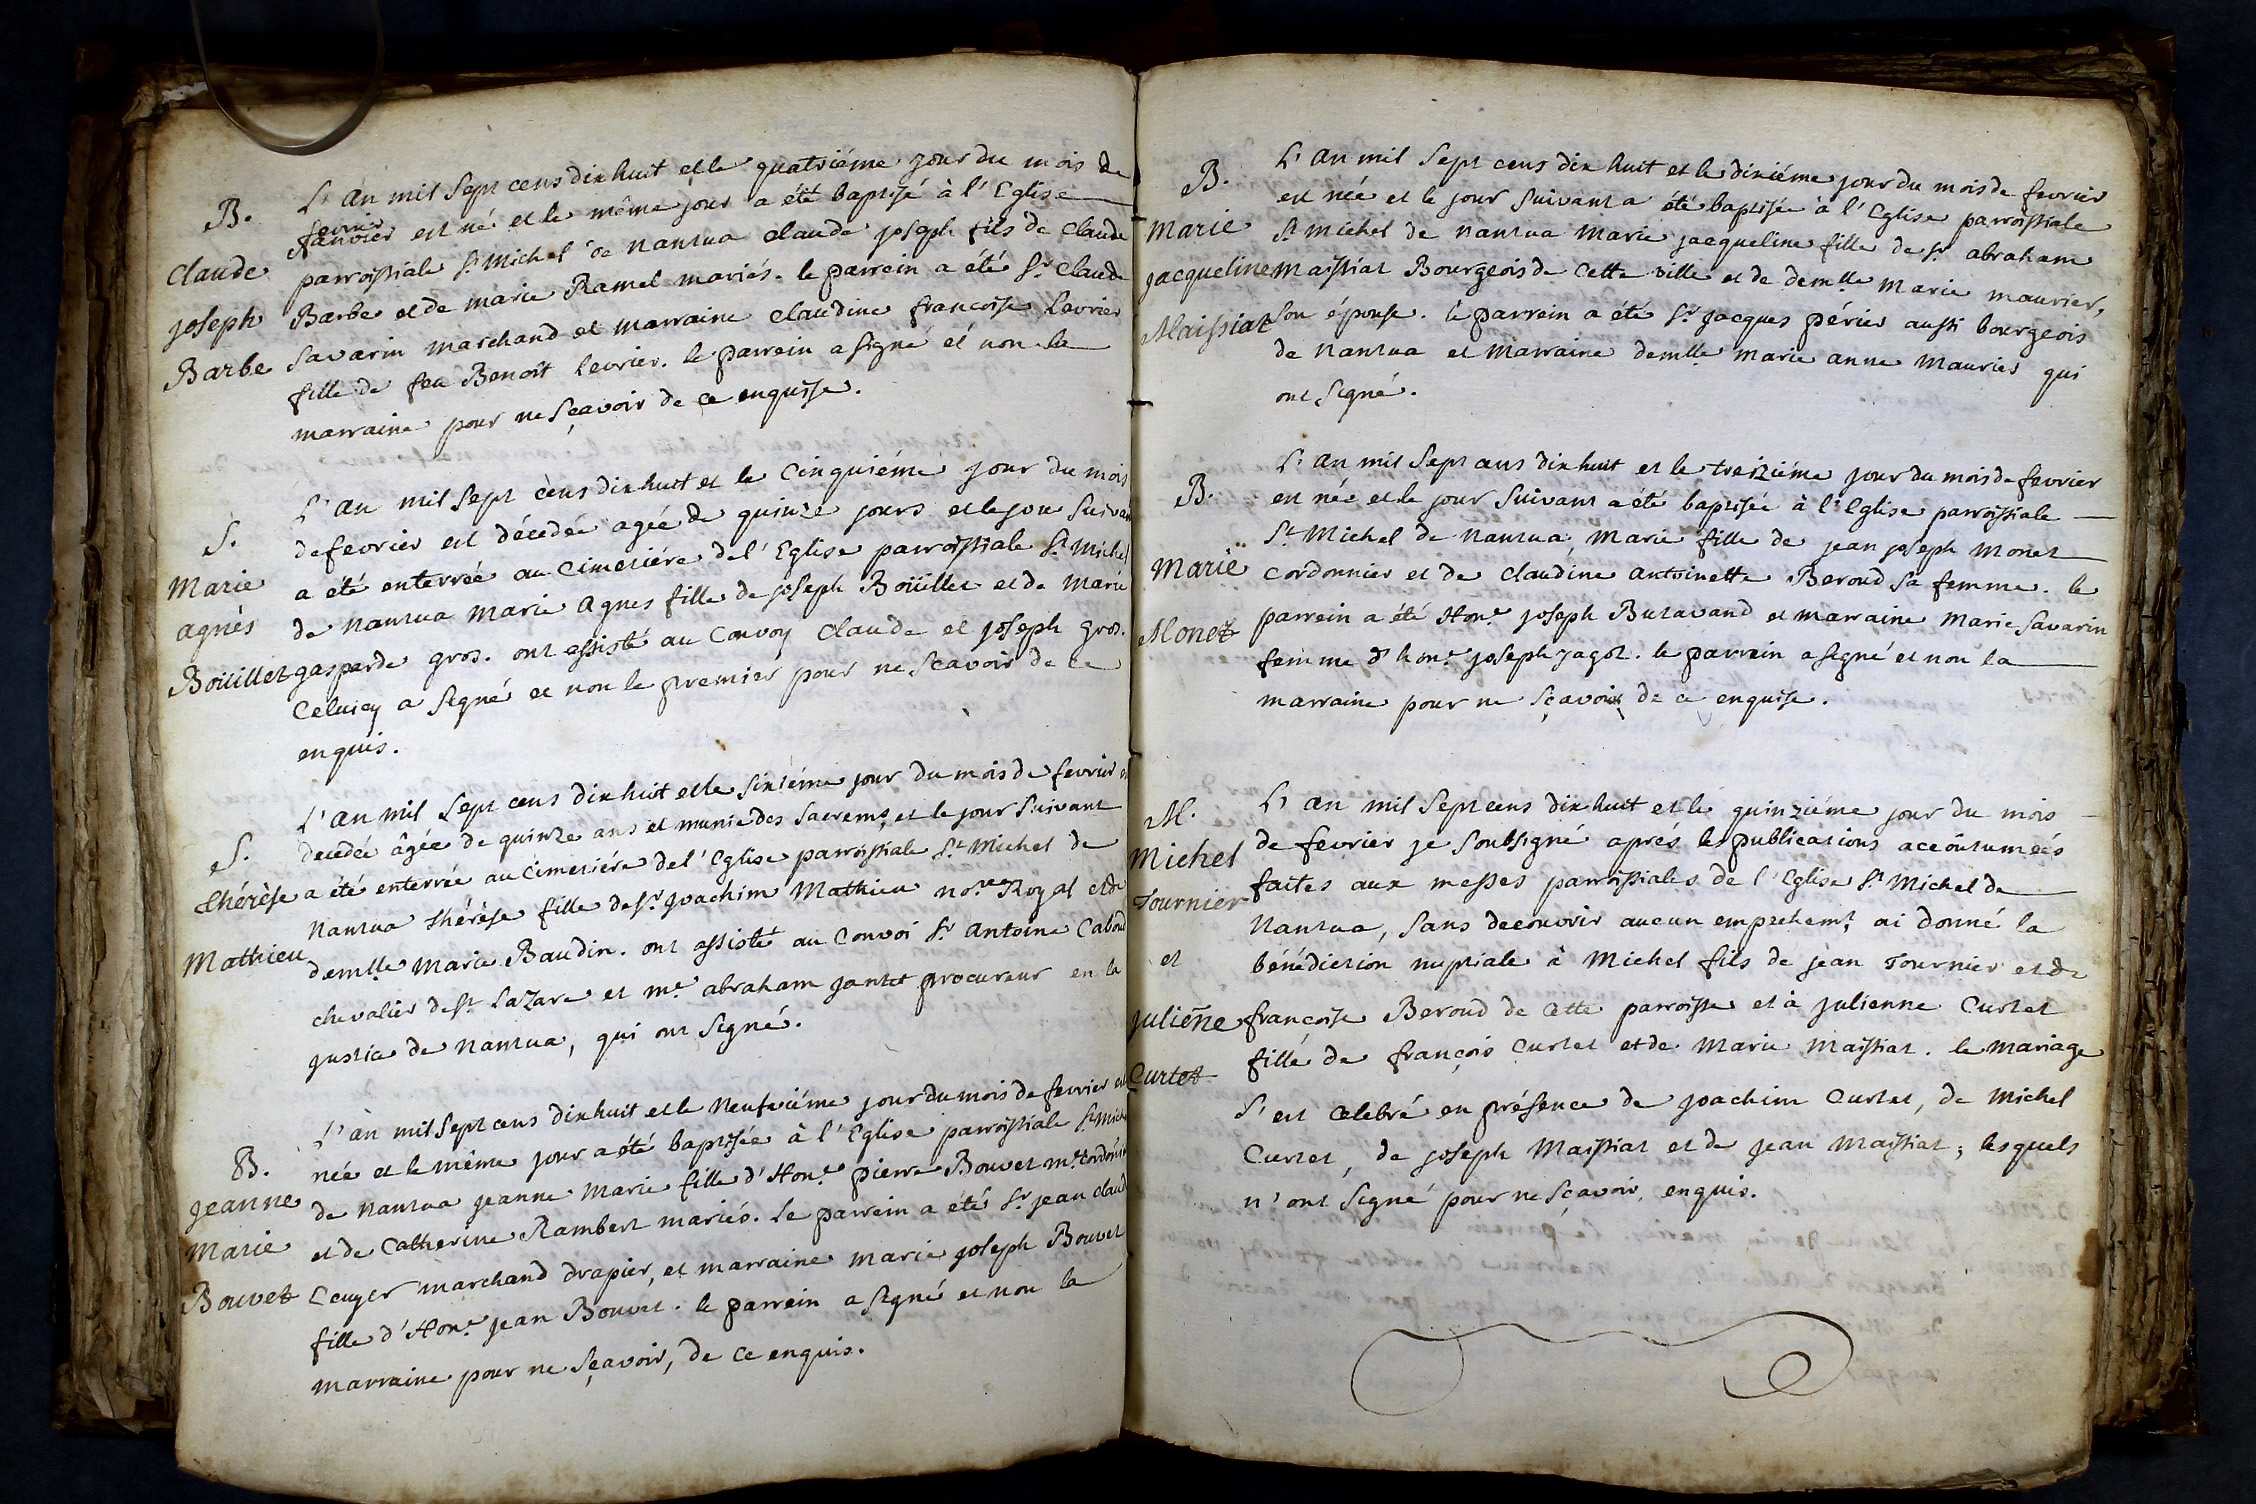 B.
Claude
joseph
Barbe
L'an mil sept cens dix huit et le quatriéme jour du mois de
fevrier
janvier est né et le même jour a été baptisé à l'Eglise
parroissiale St Michel de Nantua claude joseph fils de claude
Barbe et de marie Ramel mariés. le parrein a été Sr claude
Savarin marchand et marraine claudine francoise levrier
fille de feu Benoît levrier. le parrein a signé et non la
marraine pour ne sçavoir de ce enquise.
S.
Marie
agnès
Boüillet
L'an mil sept cens dix huit et le cinquiéme jour du mois
de fevrier est décedée agée de quinze jours et le jour suivan
a été enterrée au cimetiére de l'Eglise parroissiale St Michel
de Nantua Marie Agnes fille de joseph Boüillet et de Marie
gasparde gros. ont assisté au Convoy Claude et joseph gros.
Celuicy a signé et non le premier pour ne sçavoir de ce
enquis.
S.
thérèse
Mathieu
L'an mil sept cens dix huit et le sixiéme jour du mois de fevrier e
decedée âgée de quinze ans et munie des sacremts et le jour suivant
a été enterrée au cimetiére de l'Eglise parroissiale St Michel de
Nantua thérèse fille de Sr joachim Mathieu nore Royal et de
demlle Marie Baudin. ont assisté au convoi Sr antoine Cabou
chevalier de St Lazare et me abraham jantet procureur en la
justice de Nantua, qui ont signé.
B.
jeanne
Marie
Bouvet
L'an mil sept cens dix huit et le Neufviéme jour du mois de fevrier est
née et le même jour a été baptisée à l'Eglise parroissiale St Miche
de Nantua jeanne Marie fille d'Hone pierre Bouvet me cordonier
et de Catherine Rambert mariés. le parrein a été Sr jean claud
Leuger marchand drapier, et marraine marie joseph Bouvet
fille d'Hone jean Bouvet. le parrein a signé et non la
marraine pour ne sçavoir, de ce enquis.
B.
Marie
jacqueline
Maissiat
L'an mil sept cens dix huit et le dixiéme jour du mois de fevrier
est née et le jour suivant a été baptisée à l'Eglise parroissiale
St michel de Nantua Marie jacqueline fille de Sr abraham
maissiat Bourgeois de Cette ville et de demlle Marie maurier,
son épouse. le parrein a été Sr jacques périer aussi bourgeois
de Nantua et Marraine demlle Marie anne Maurier qui
ont signé.
B.
Marie
Monet
L'an mil sept cens dix huit et le treiziéme jour du mois de fevrier
est née et le jour suivant a été baptisée à l'Eglise parroissiale
St Michel de Nantua, Marie fille de jean joseph Monet
cordonnier et de claudine antoinette Beroud sa femme. le
parrein a été Hone joseph Butavand et marraine Marie Savarin
femme d'hone joseph jagot. le parrein a signé et non la
marraine pour ne sçavoir de ce enquise.
M.
Michel
Tournier
et
julieñe
Curtet
L'an mil sept cens dix huit et le quinziéme jour du mois
de fevrier je soubsigné aprés les publications accoutumées
faites aux messes parroissiales de l'Eglise St Michel de
Nantua, sans decouvrir aucun empechemt ai donné la
bénédiction nuptiale à Michel fils de jean Tournier et de
francoise Beroud de cette parroisse et à julienne Curtet
fille de françois Curtet et de Marie Maissiat. le mariage
s'est celebré en présence de joachim Curtet, de Michel
Curtet, de joseph Maissiat et de jean Maissiat, lesquels
n'ont signé pour ne sçavoir, enquis.